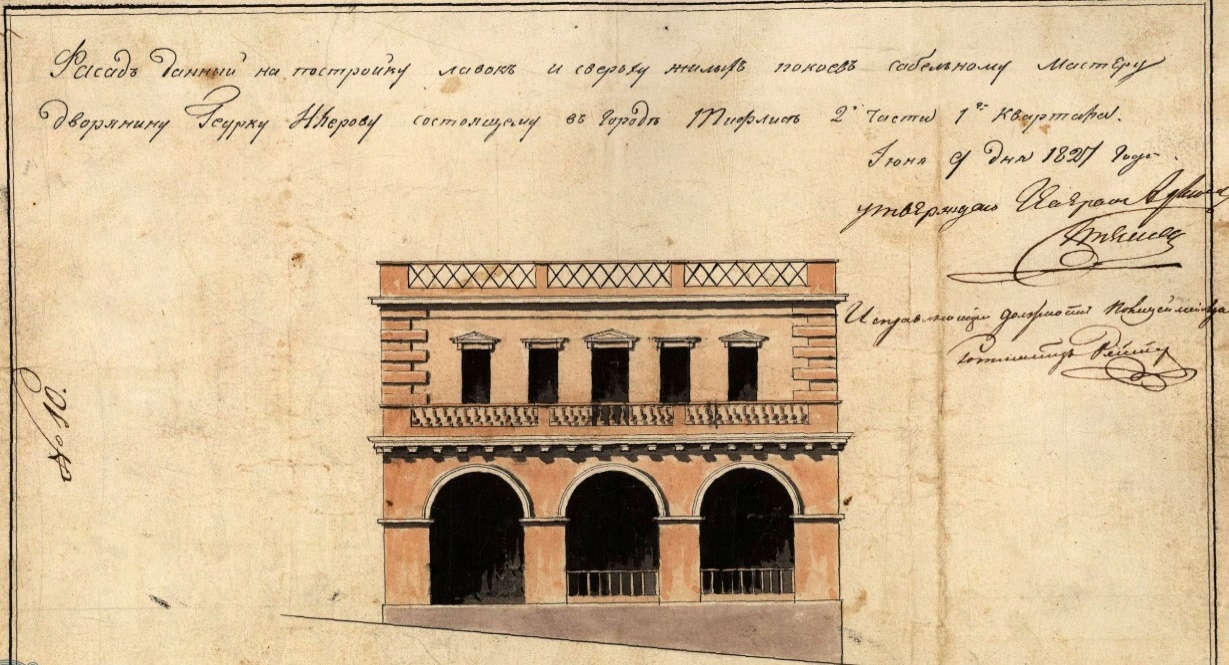 Фасадъ данный на постройку лавокъ и сверьху жилыхъ покоевъ сабельному мастеру
дворянину Геурку состоящему въ городѣ Тифлисѣ 2й части 1го квартала.
Июня 9 дня 1827 года.
утверждаю
Исправляющий должность Полицеймейстера
№ 10.